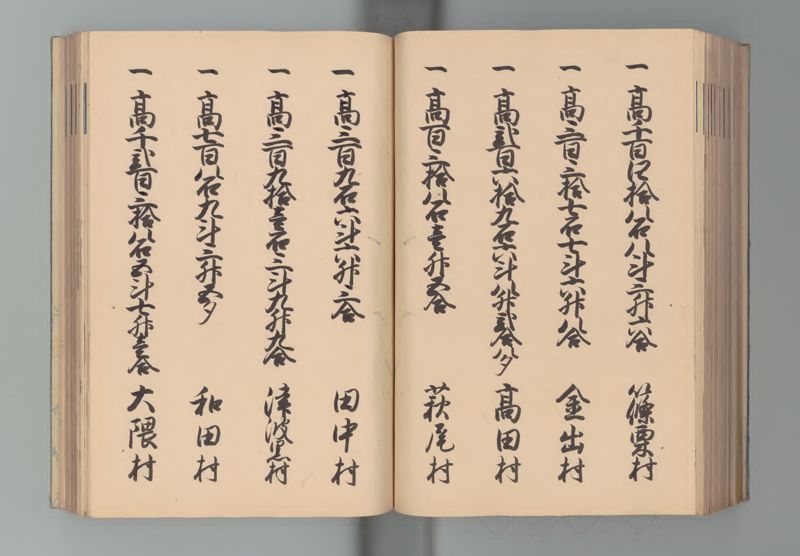 一 高千百四拾八石八斗三升六合 篠栗村
一 高三百三拾七石七斗六升八合 金出村
一 高弐百六拾九石六斗八升弐合八夕 高田村
一 高百三拾八石壱升五合 萩尾村
一 高三百九石六斗六升三合 田中村
一 高三百九拾壱石三斗九升九合 津波黒村
一 高七百八石九斗三升五夕 和田村
一 高千弐百三拾八石五斗七升壱合 大隈村